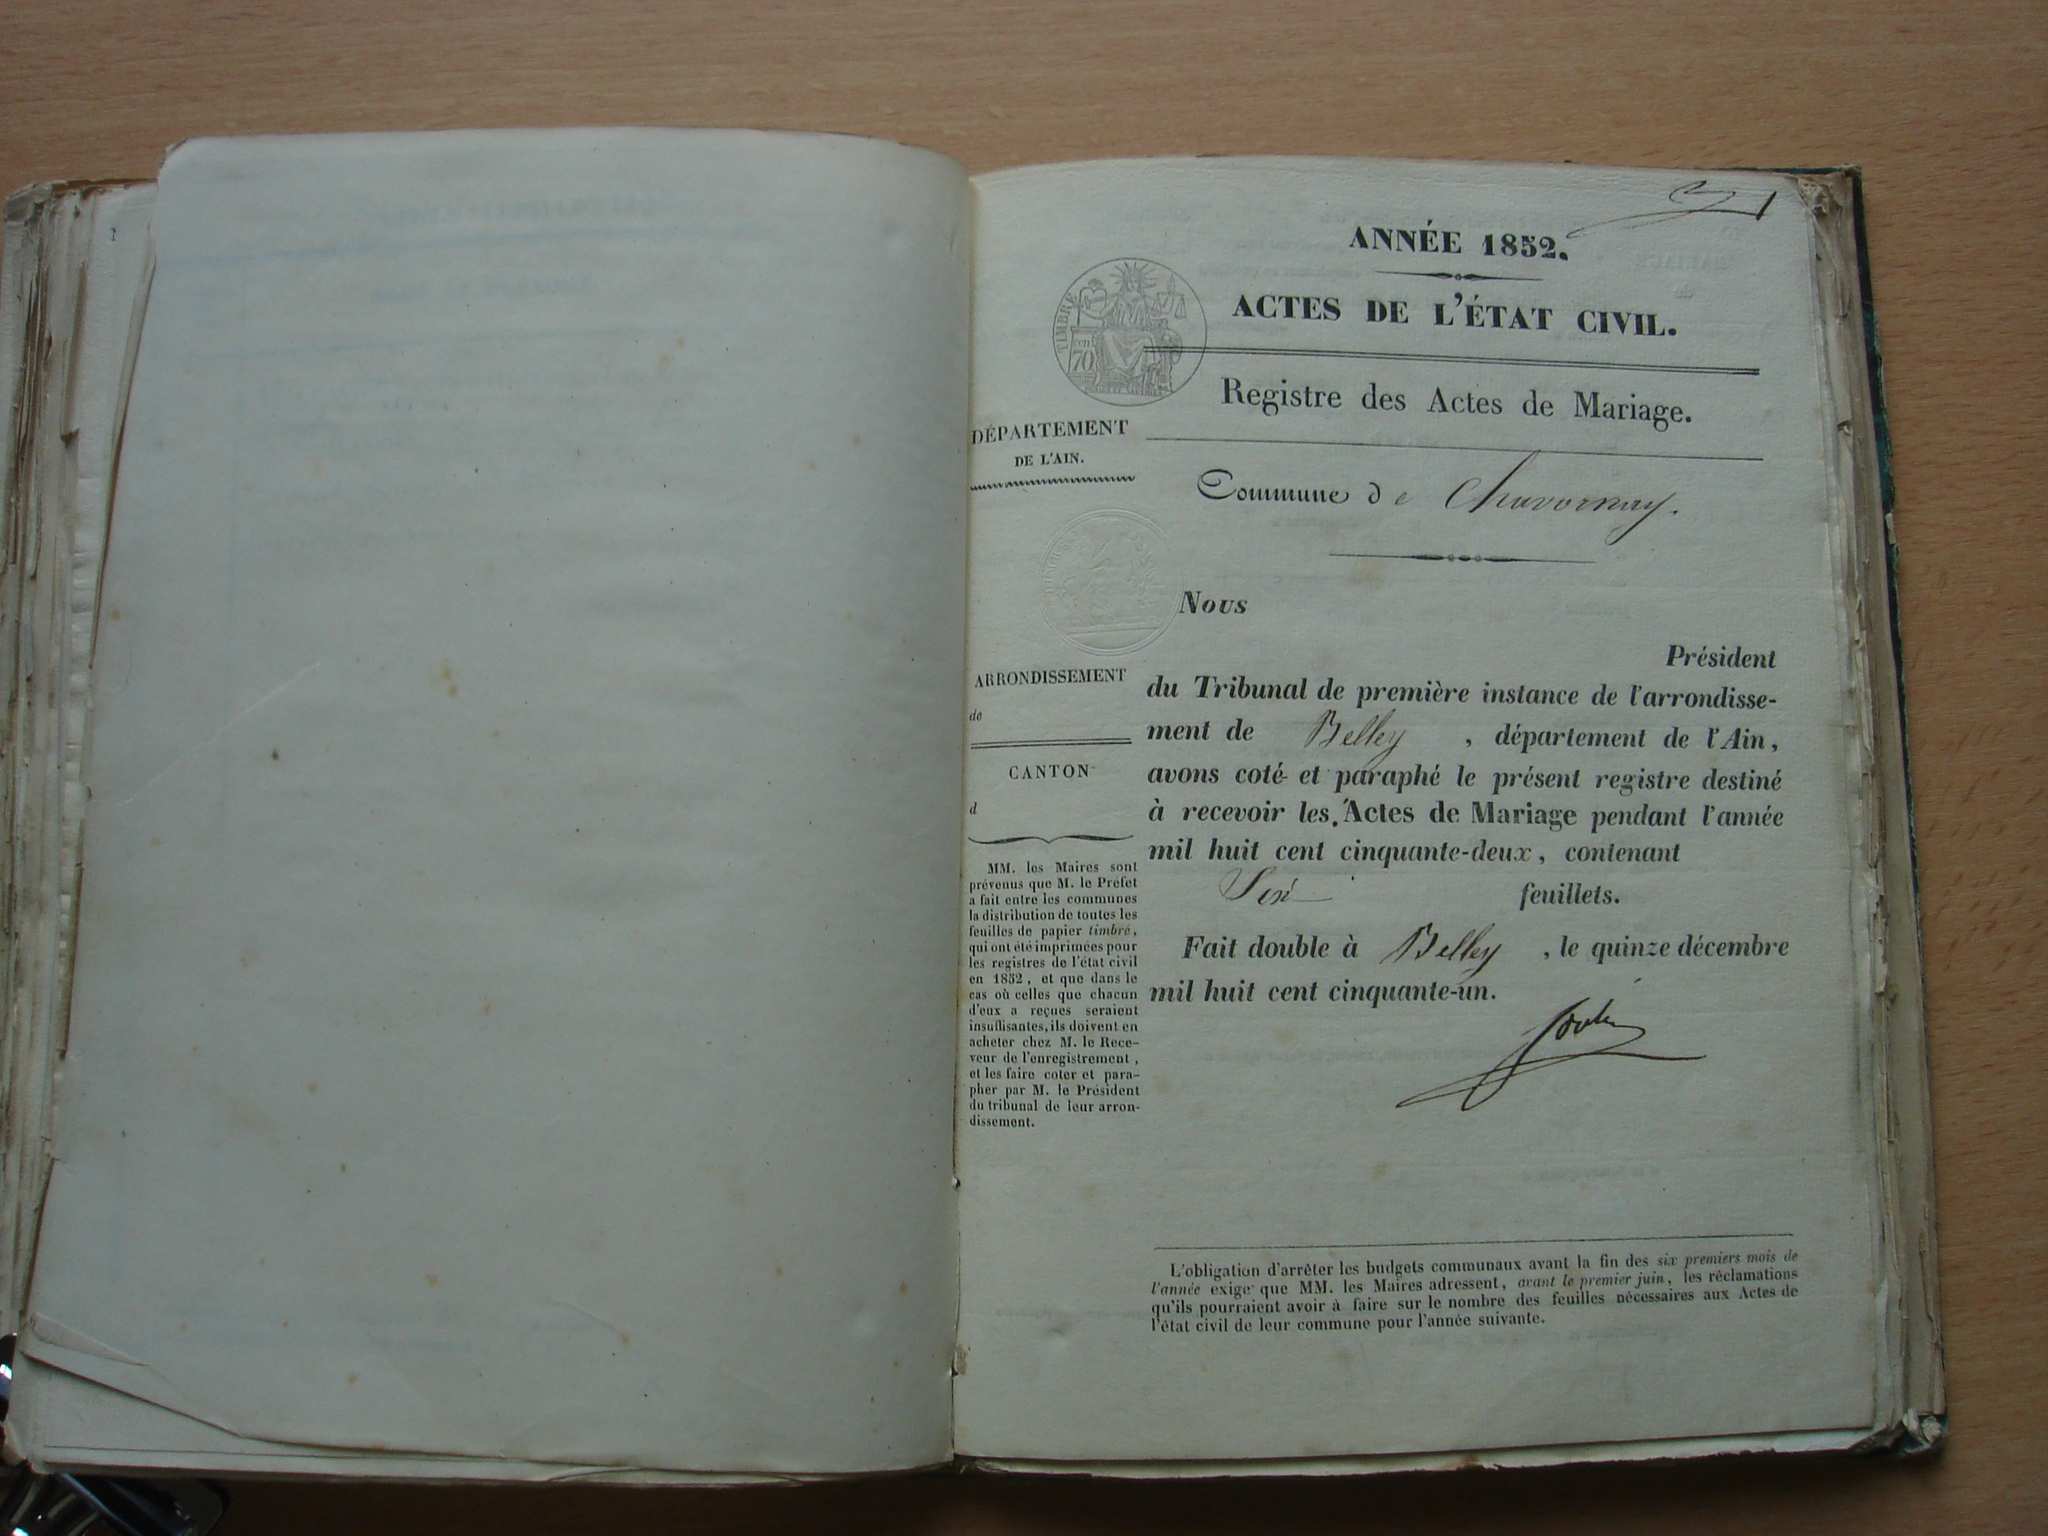 1
ANNÉE 1852.
ACTES DE L'ÉTAT CIVIL.
TIMBRE
70
Registre des Actes de Mariage.
DÉPARTEMENT
DE L'AIN.
Commune de Chavornay.
Nous
Président
du Tribunal de première instance de l'arrondisse-
ment de Belley, département de l'Ain,
avons coté et paraphé le présent registre destiné
à recevoir les Actes de Mariage pendant l'année
mil huit cent cinquante-deux, contenant
Six feuillets.
Fait double à Belley, le quinze décembre
mil huit cent cinquante-un.
ARRONDISSEMENT
de
CANTON
d
MM. les Maires sont
prévenus que M. le Préfet
a fait entre les communes
la distribution de toutes les
feuilles de papier timbré,
qui ont été imprimées pour
les registres de l'état civil
en 1852, et que dans le
cas où celles que chacun
d'eux a reçues seraient
insuffisantes, ils doivent en
acheter chez M. le Rece-
veur de l'enregistrement,
et les faire coter et para-
pher par M. le Président
du tribunal de leur arron-
dissement.
L'obligation d'arrêter les budgets communaux avant la fin des six premiers mois de
l'année exige que MM. les Maires adressent, avant le premier juin, les réclamations
qu'ils pourraient avoir à faire sur le nombre des feuilles nécessaires aux Actes de
l'état civil de leur commune pour l'année suivante.